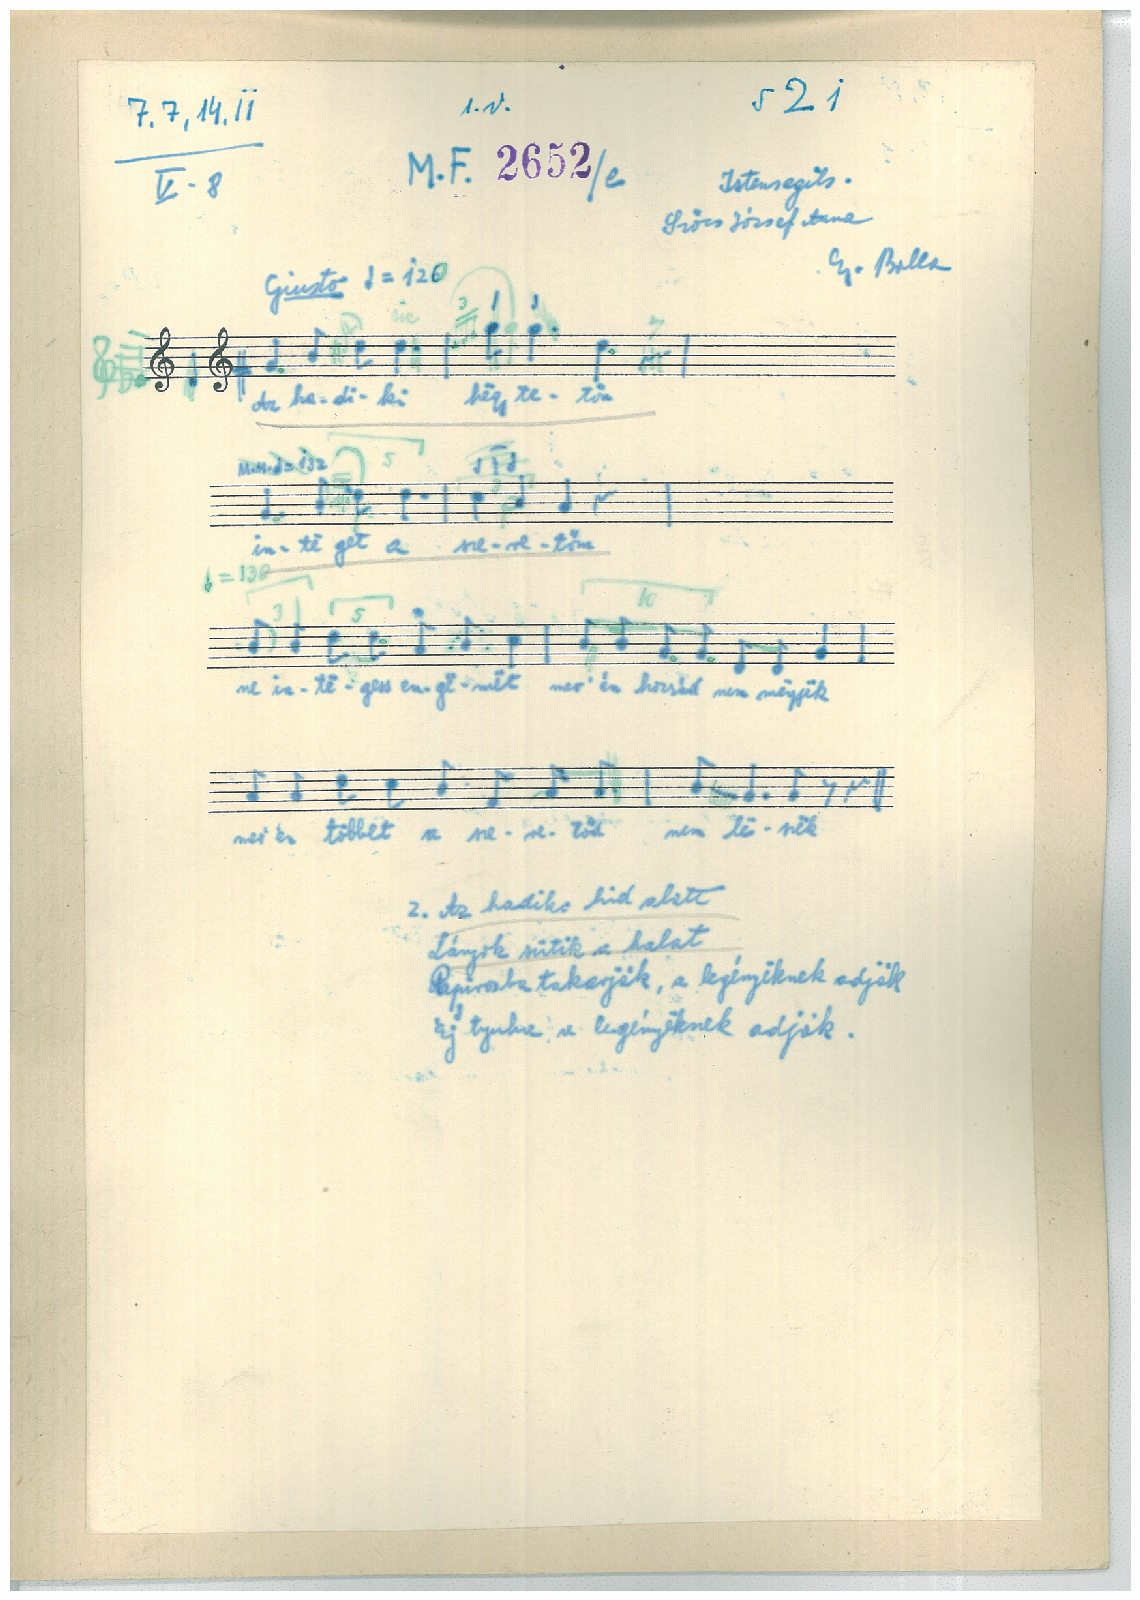 7.7,14.11 1.v. 5 2 1
V - 8
M.F. 2652/e
Istensegíts.
Szőcs József Anna
Gy. Balla
Giusto ♩= 120
Az ha-di-ki hëgy te-tön
M.M. ♩= 132 5
in-të get a sze-re-töm
♩= 130
3 5 10
ne in-të-gess en-gë-mët mer' én hozzád nem mëgyëk
mer' én többet a sze-re-tőd nem lë-szëk
2. Az hadiki hid alatt
Lányok sütik a halat
Papirosba takarják, a legényëknek adják
Ëj tyuhre a legényëknek adják.